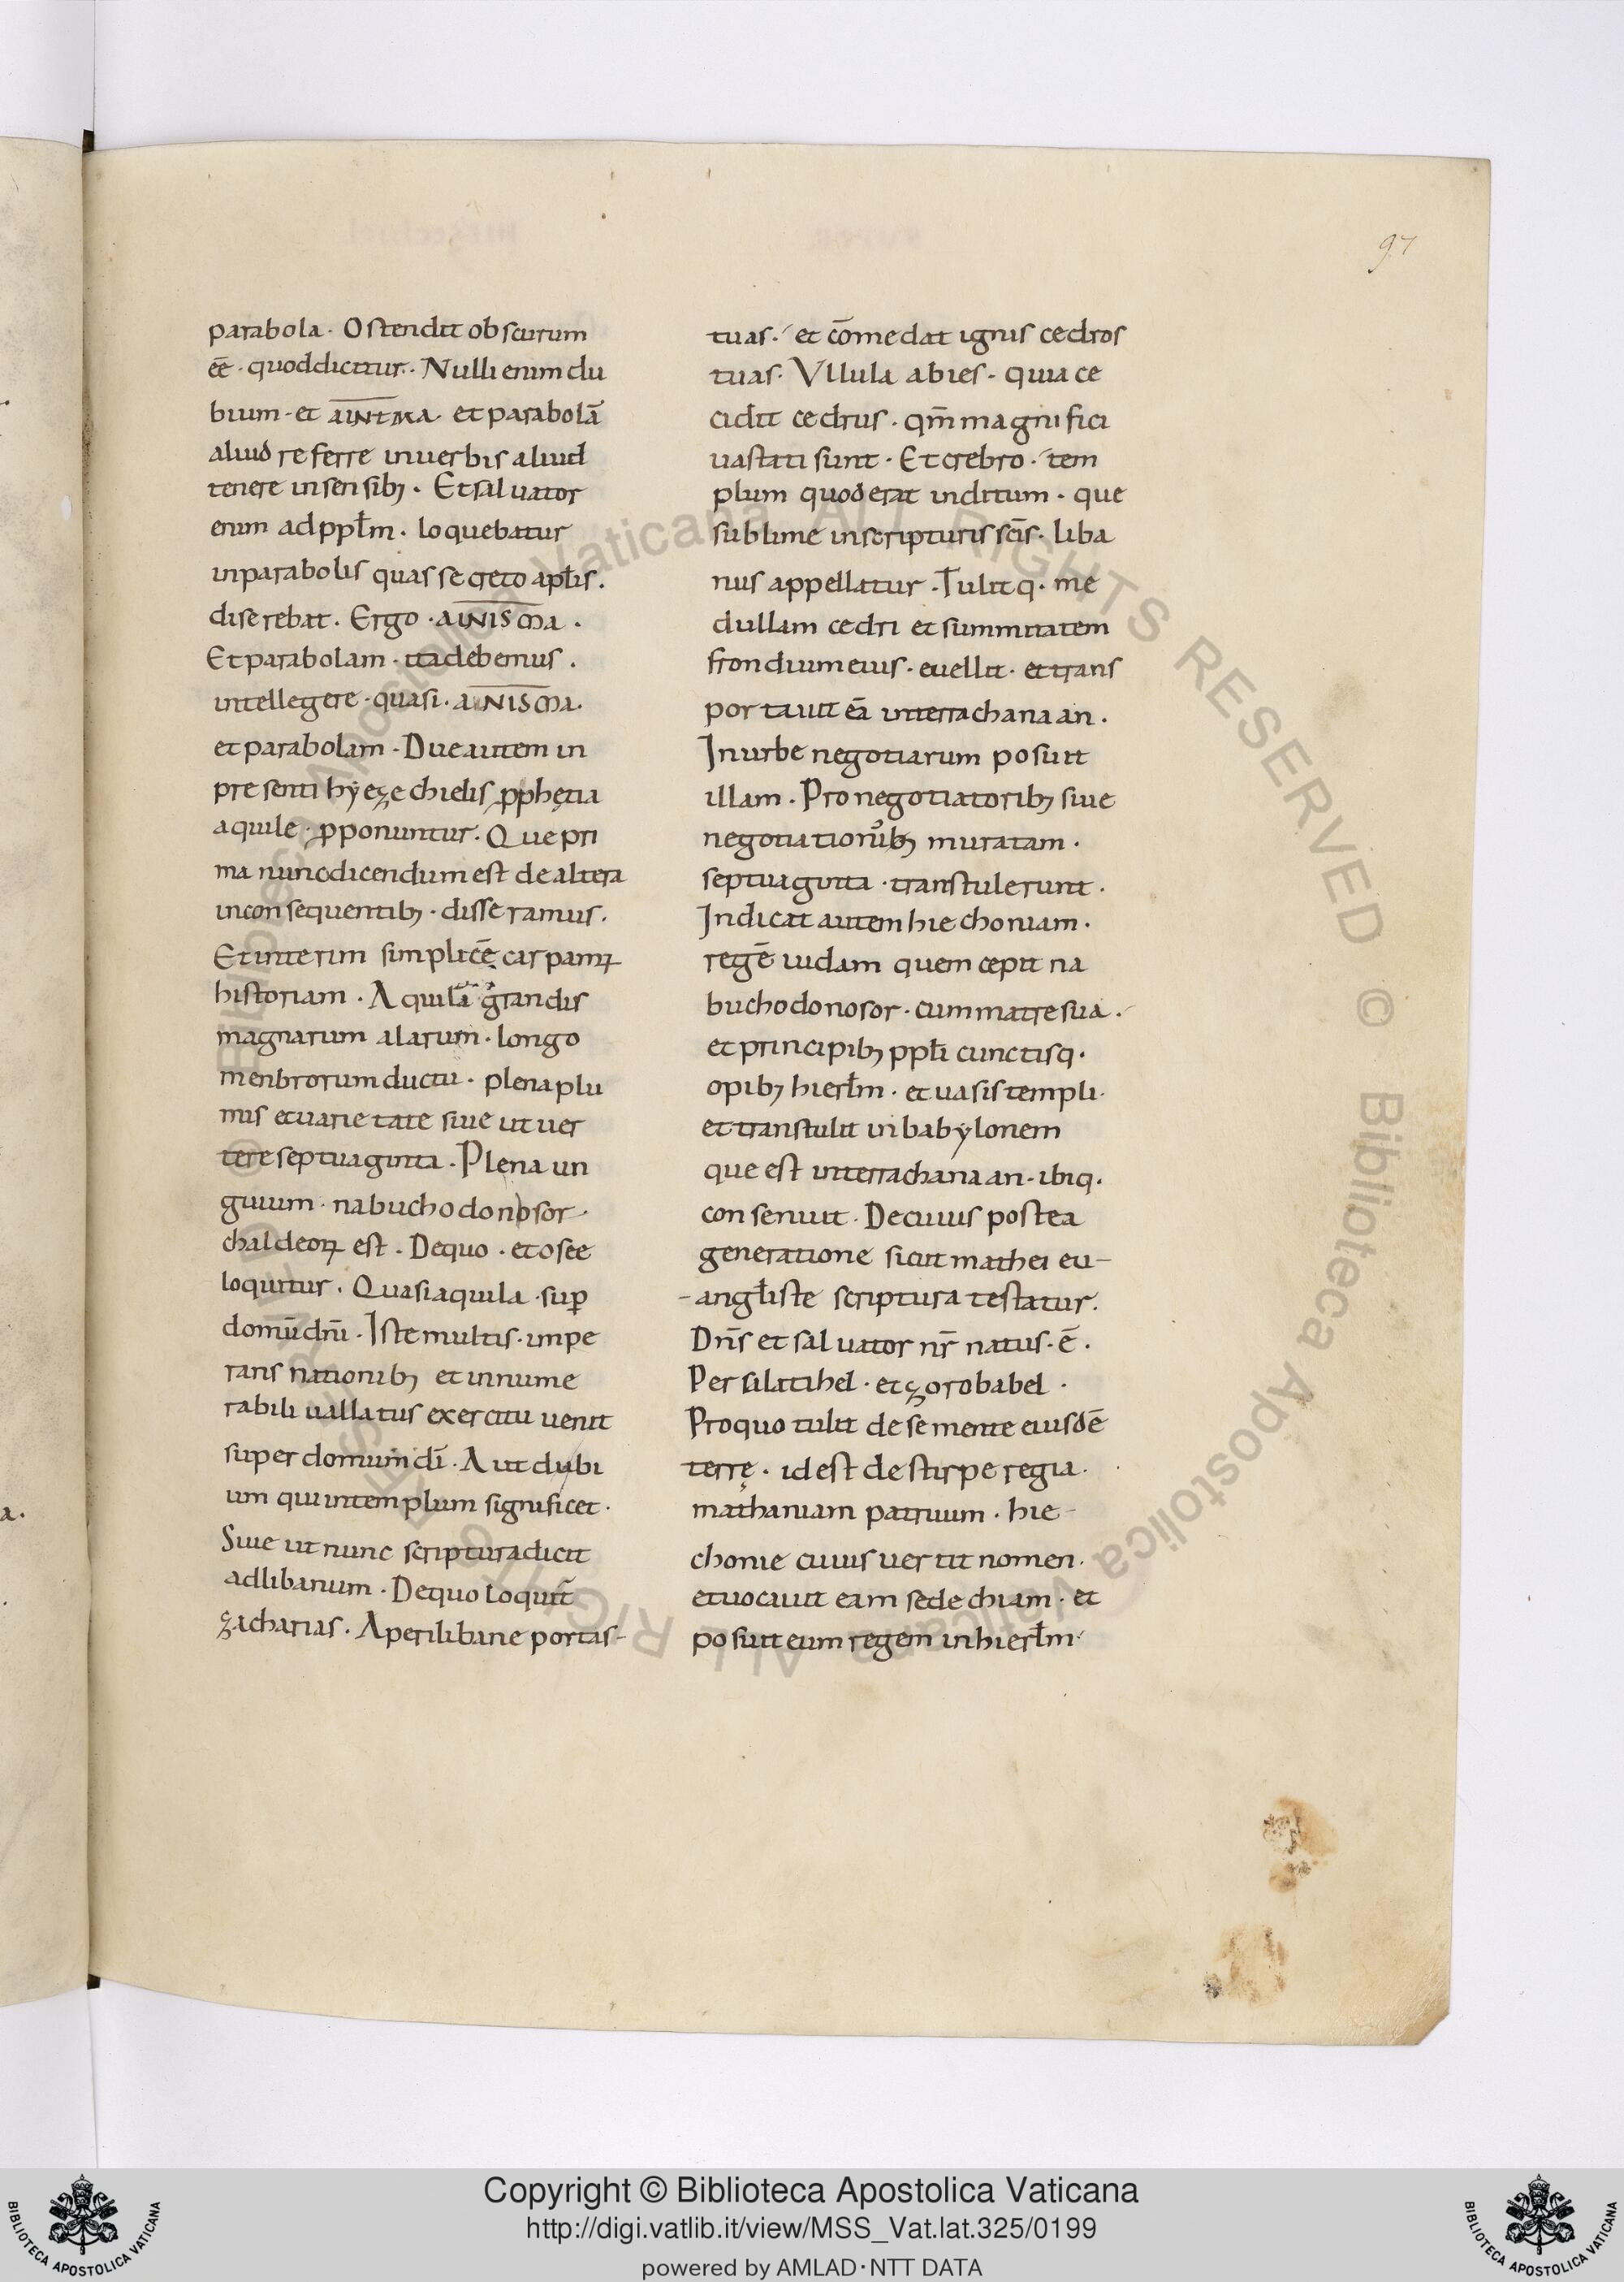 97
parabola · Ostendit obscurum
eē · quoddicitur · Nulli enim du
bium · et aINtMa · et parabolā
aliud referre inuerbis aliud
tenere insensibꝫ · Et saluator
enim ad ppl̄m · loquebatur
inparabolis quas secreto apl̄is ·
diserebat · Ergo · aINISma ·
Et parabolam · ita debemus ·
intellegere · quasi · aINISma ·
et parabolam · Due autem in
presenti hyezechielis ꝓphętia
aquile · ꝓponuntur · Que pri
ma nuncdicendum est de altera
inconsequentibꝫ · disseramus ·
Et interim simplicē carpamꝰ
historiam · Aquila grandis
magnarum alarum · longo
menbrorum ductu · plena plu
mis et uarietate siue ut uer
tere septuaginta · Plena un
guium · nabuchodonosor ·
chaldeoꝝ est · Dequo · et osee
loquitur · Quasi aquila · suꝑ
domū dn̄i · Iste multis · impe
rans nationibꝫ et innume
rabili uallatus exercitu uenit
super domum dī · Aut dubi
um qui intemplum significet ·
Siue ut nunc scriptura dicit
adlibanum · Dequo loquit̄
zacharias · Aperi libane portas-
tuas · et cōmedat ignis cedros
tuas · Vllula abies · quia ce
cidit cedrus · qm̄ magnifici
uastati sunt · Et crebro · tem
plum quod erat inditum · que
sublime inscripturis scīs · liba
nus appellatur · Tulit q · me
dullam cedri et summitatem
frondium eius · euellit · et trans
portauit eā interra chanaan ·
In urbe negotiarum posuit
illam · Pro negotiatoribꝫ siue
negotiationibꝫ muratam ·
septuaginta · transtulerunt ·
Indicat autem hiechoniam ·
regē iudam quem cepit na
buchodonosor · cum matre sua ·
et principibꝫ ppl̄i cunctisq ·
opibꝫ hierl̄m · et uasis templi ·
et transtulit inbabylonem
que est interra chanaan · ibiq ·
consenuit · De cuius postea
generatione sicut mathei eu-
-angl̄iste scriptura testatur ·
Dn̄s et saluator nr̄ natus · ē ·
Per silatihel · et zorobabel ·
Proquo tulit de semente eiusdē
terrę · id est de stirpe regia ·
mathaniam patruum · hie-
chonie cuius uertit nomen ·
et uocauit eam sedechiam · et
posuit eum regem inhierl̄m
Copyright © Biblioteca Apostolica Vaticana
http://digi.vatlib.it/view/MSS_Vat.lat.325/0199
powered by AMLAD·NTT DATA